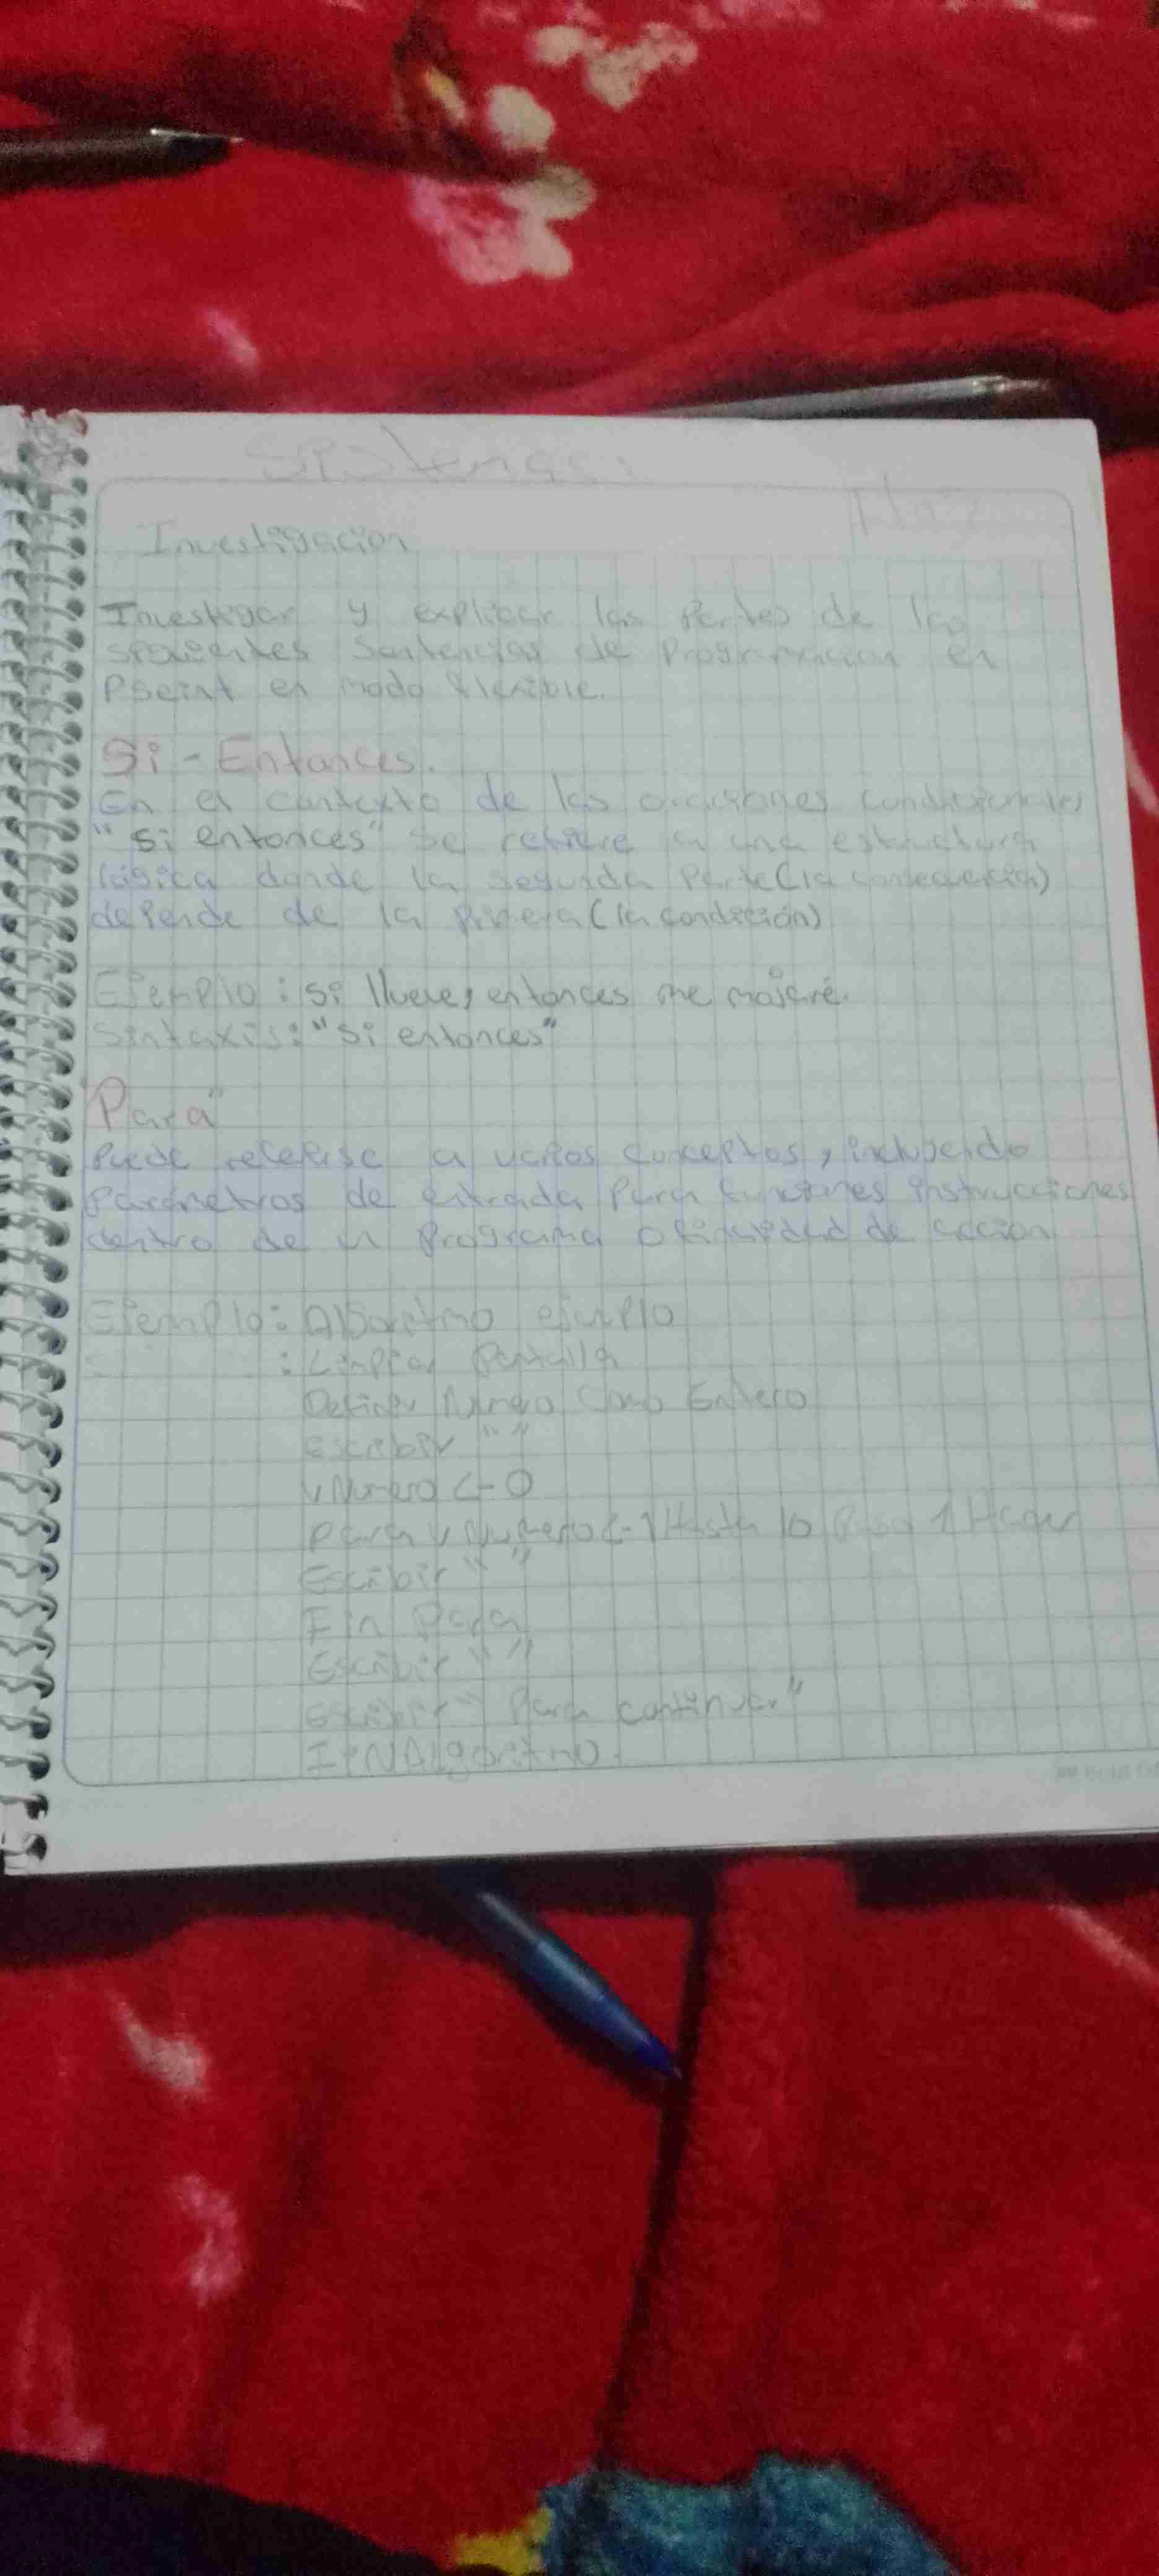 Sistemas:
Investigacion
Investigar y explicar las Partes de las
siguientes Sentencias de Programacion en
Pseint en modo flexible.
Si - Entonces.
En el contexto de las oraciones condicionales
"si entonces" se refiere a una estructura
lógica donde la segunda Parte(la consecuencia)
depende de la Primera (la condición)
Ejemplo: si llueve, entonces me mojaré.
Sintaxis: "si entonces"
Para"
Puede referirse a varios conceptos, incluyendo
Parámetros de entrada Para funciones instrucciones
dentro de un Programa o finalidad de accion
Ejemplo: Algoritmo ejemplo
: Limpiar Pantalla
Definir Numero Como Entero
Escribir " "
vNumero <- 0
para vNumero <- 1 Hasta 10 Paso 1 Hacer
Escribir " "
Fin Para
Escribir " "
Escribir " Para continuar"